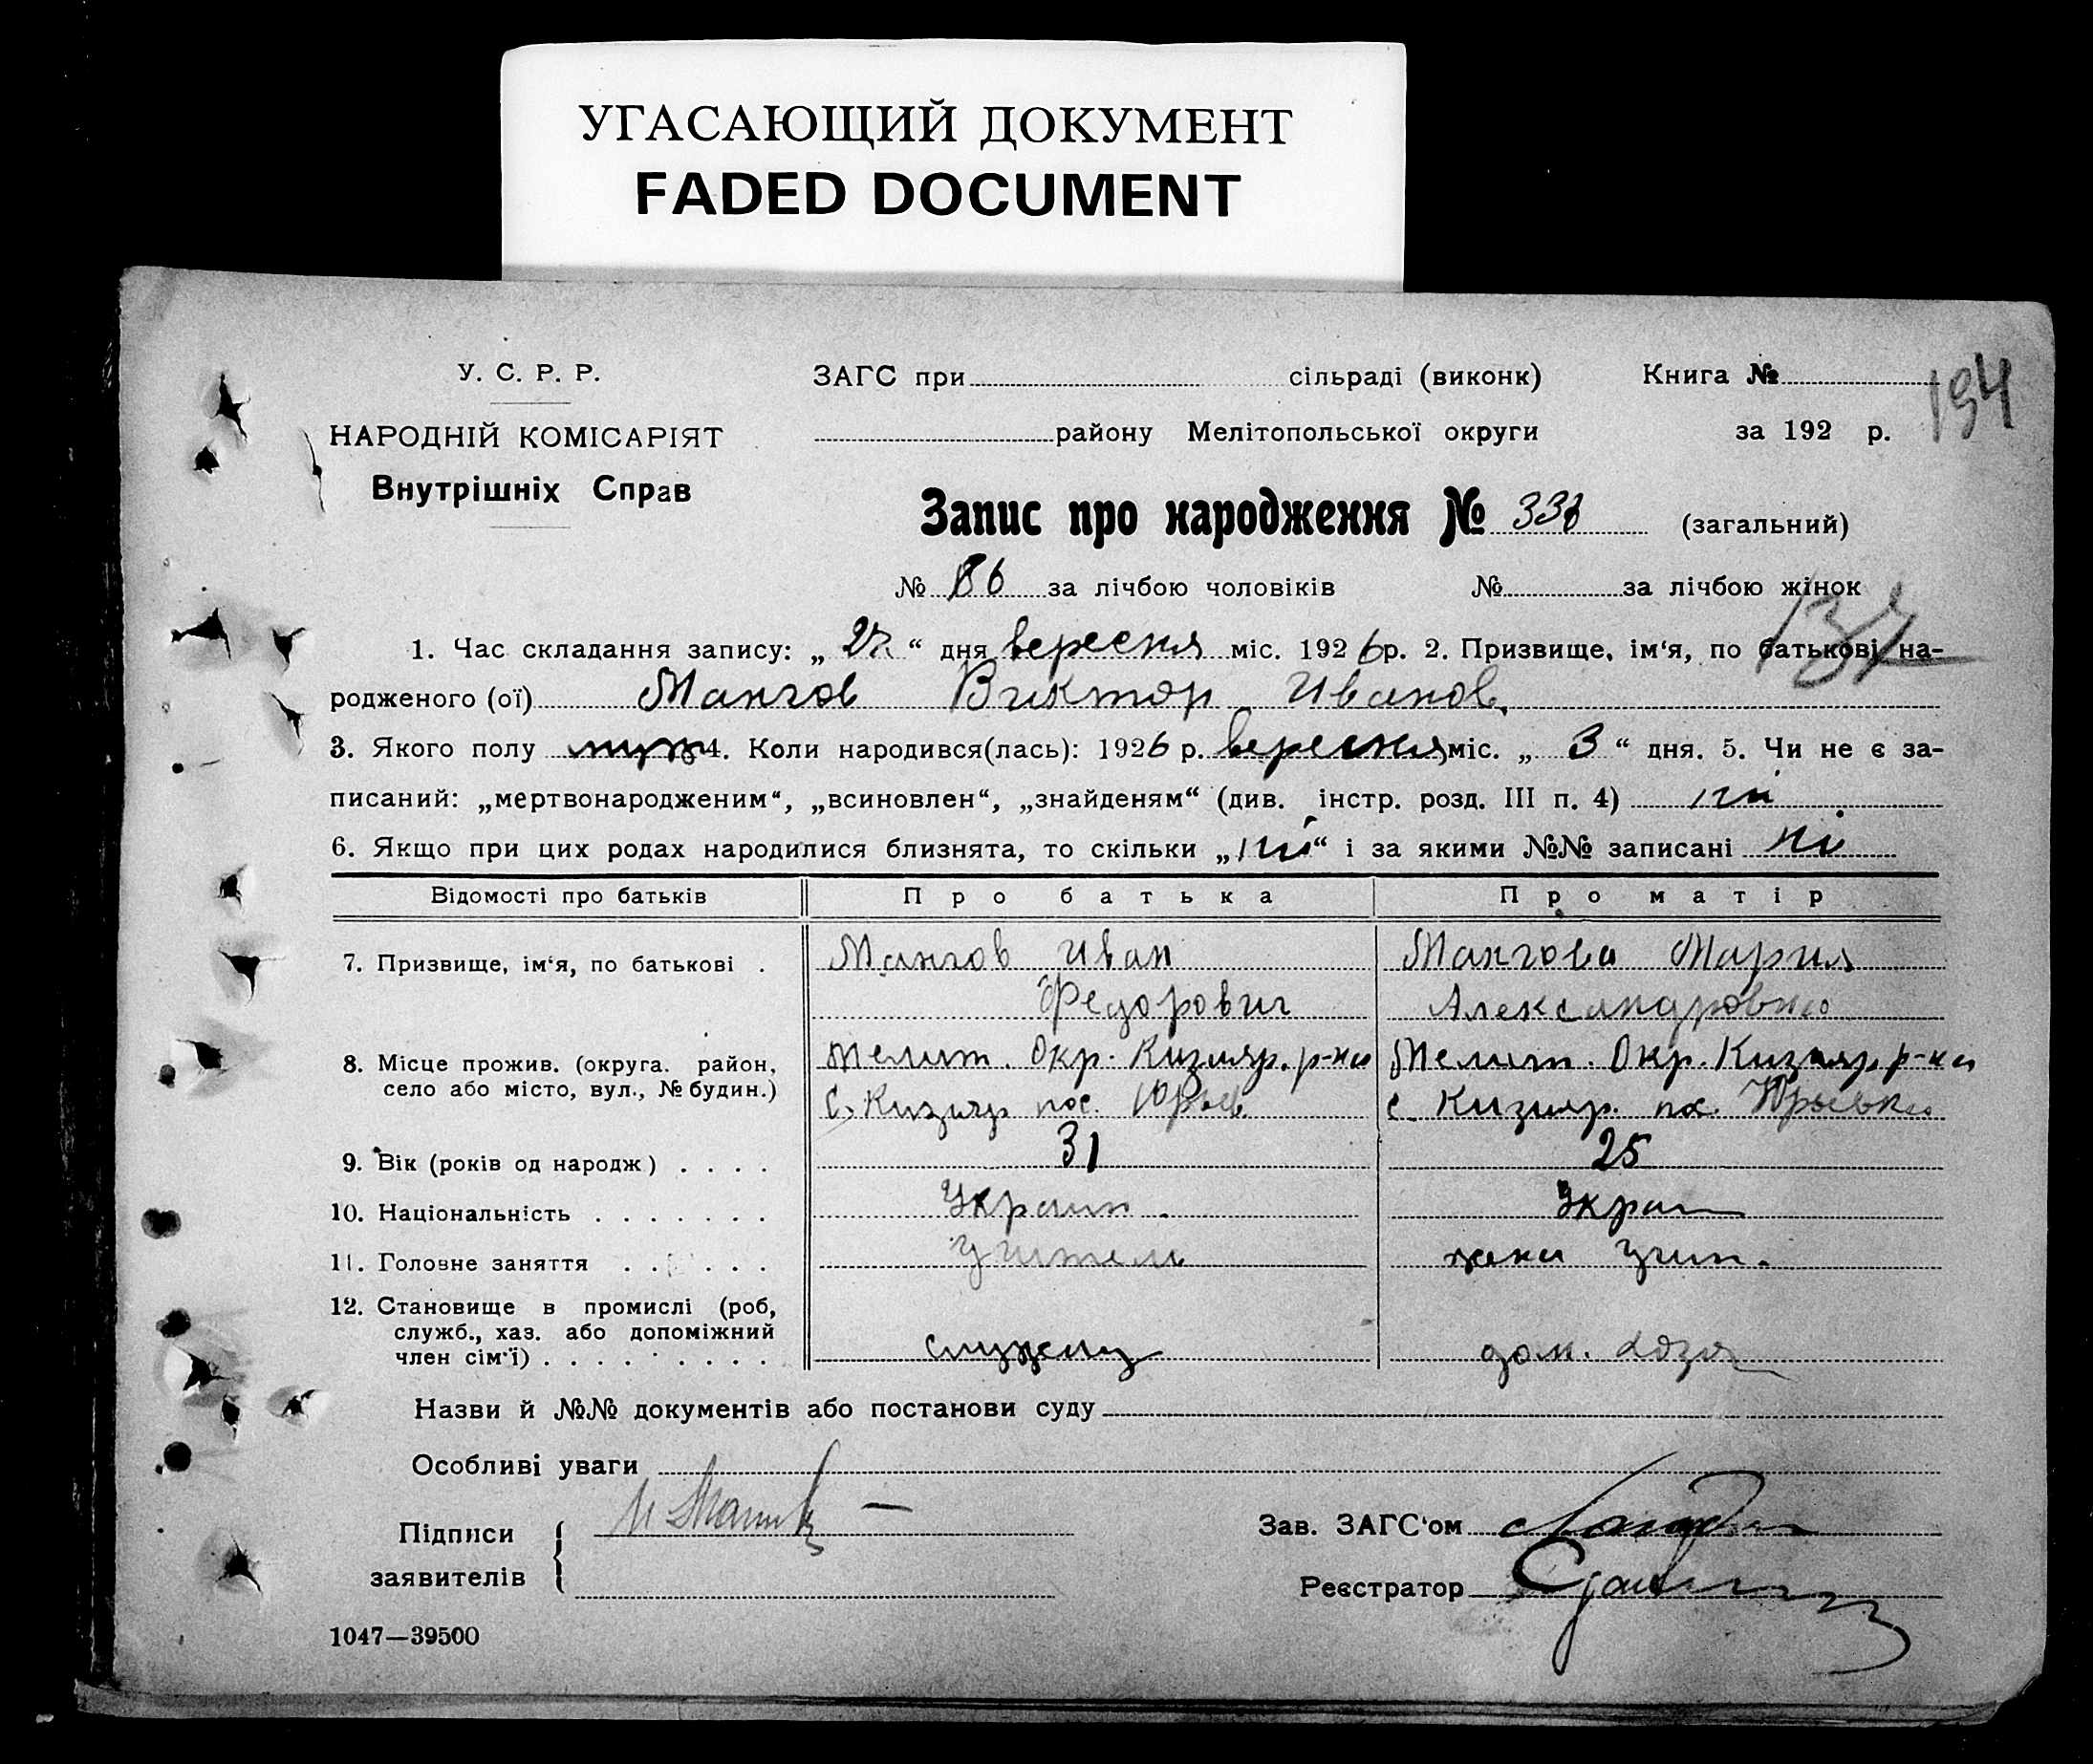 УГАСАЮЩИЙ ДОКУМЕНТ
FADED DOCUMENT
У. С. Р. Р.
НАРОДНІЙ КОМІСАРІЯТ
Внутрішніх Справ
ЗАГС при сільраді (виконк) Книга №
району Мелітопольської округи за 192 р.
194
Запис про народження № 338 (загальний)
№ 186 за лічбою чоловіків № за лічбою жінок
137
1. Час складання запису: „ 27 “ дня вересня міс. 1926 р. 2. Призвище, ім‘я, по батькові на-
родженого (ої) Мангов Виктор Иванов.
3. Якого полу муж 4. Коли народився(лась): 1926 р. вересня міс. „ 3 “ дня. 5. Чи не є за-
писаний: „мертвонародженим“, „всиновлен“, „знайденям“ (див. інстр. розд. III п. 4) ні
6. Якщо при цих родах народилися близнята, то скільки „ ні “ і за якими №№ записані ні
Відомості про батьків Про батька Про матір
7. Призвище, ім‘я, по батькові . Мангов Иван Мангова Мария
Федорович Александровна
8. Місце прожив. (округа. район, Мелит. Окр. Кизияр. р-на Мелит. Окр. Кизияр. р-на
село або місто, вул., № будин.) С. Кизияр пос. Юрьев. с. Кизияр. пос. Юрьевка
9. Вік (років од народж) . . . . 31 25
10. Національність . . . . . . . Украин. Украин
11. Головне заняття . . . . . . Учитель жена учит.
12. Становище в промислі (роб,
служб., хаз. або допоміжний
член сім‘ї) . . . . . . . . . служащ дом. хозя
Назви й №№ документів або постанови суду
Особливі уваги
Підписи
заявителів
Зав. ЗАГС‘ом
Реєстратор
1047—39500